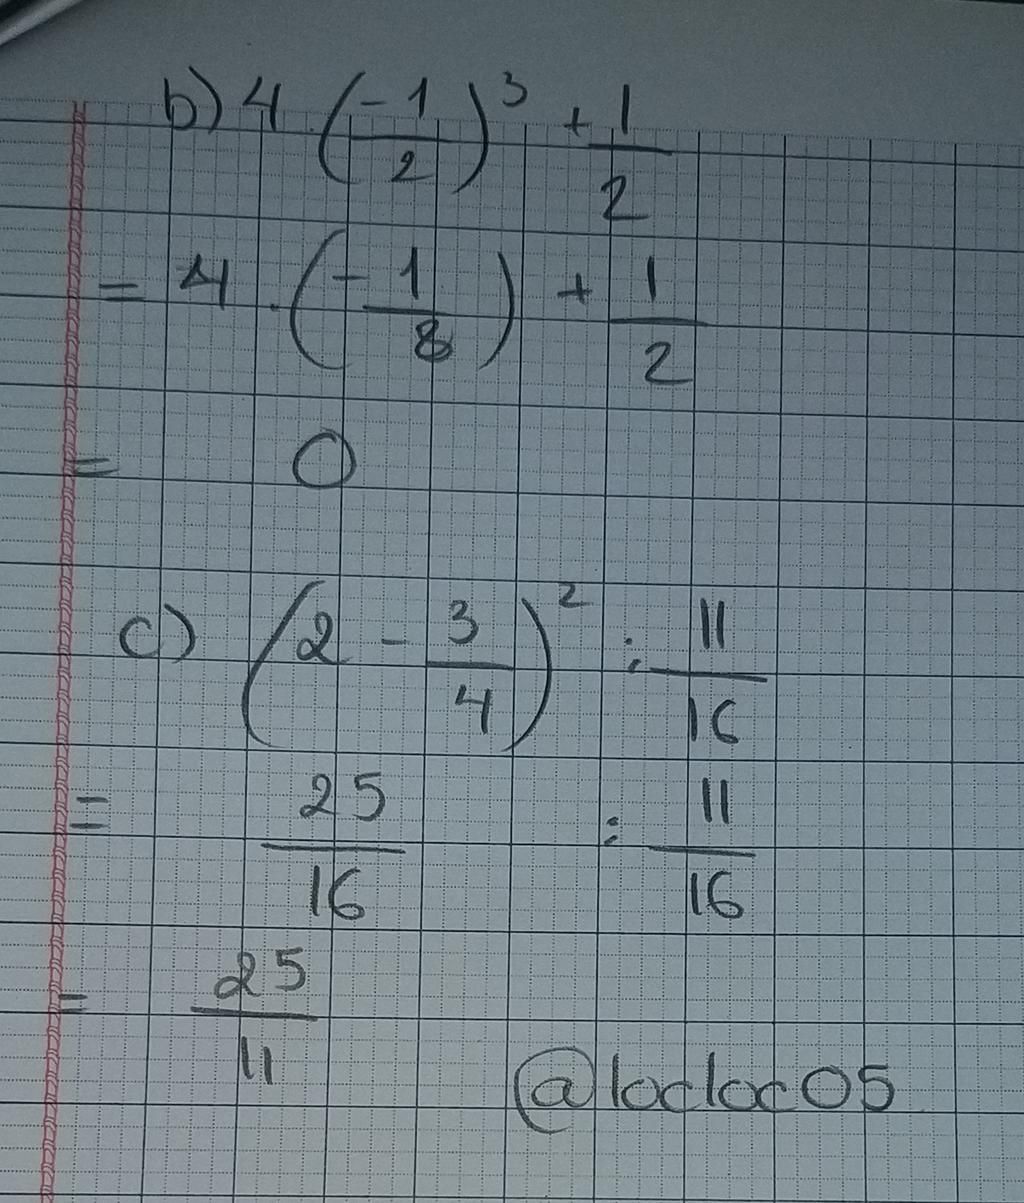 b) 4 . (-1/2)³ + 1/2
= 4 . (-1/8) + 1/2
= 0
c) (2 - 3/4)² : 11/16
= 25/16 : 11/16
= 25/11
@locloc05